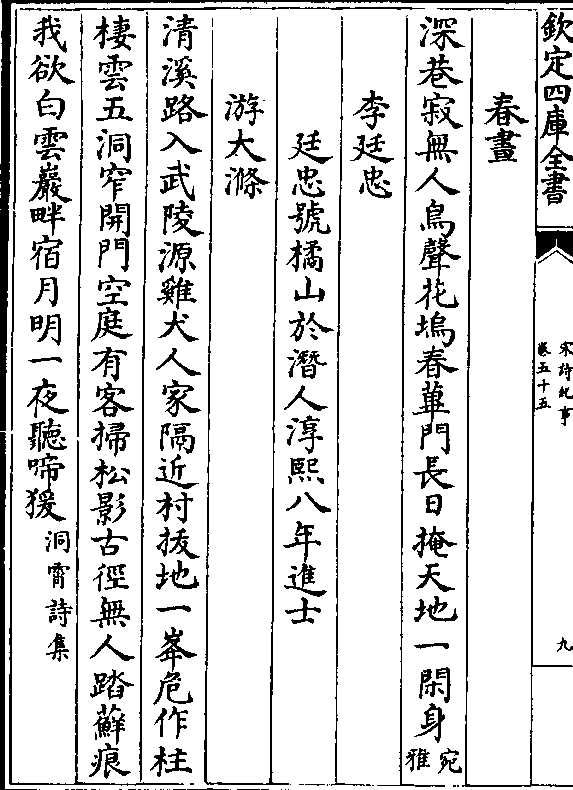 欽定四庫全書
宋詩紀事
卷五十五
九
春晝
深巷寂無人鳥聲花塢春蓽門長日掩天地一閑身宛雅
李廷忠
廷忠號橘山於潛人淳熙八年進士
游大滌
清溪路入武陵源雞犬人家隔近村拔地一峯危作柱
棲雲五洞窄開門空庭有客掃松影古徑無人踏蘚痕
我欲白雲巖畔宿月明一夜聽啼猨洞霄詩集